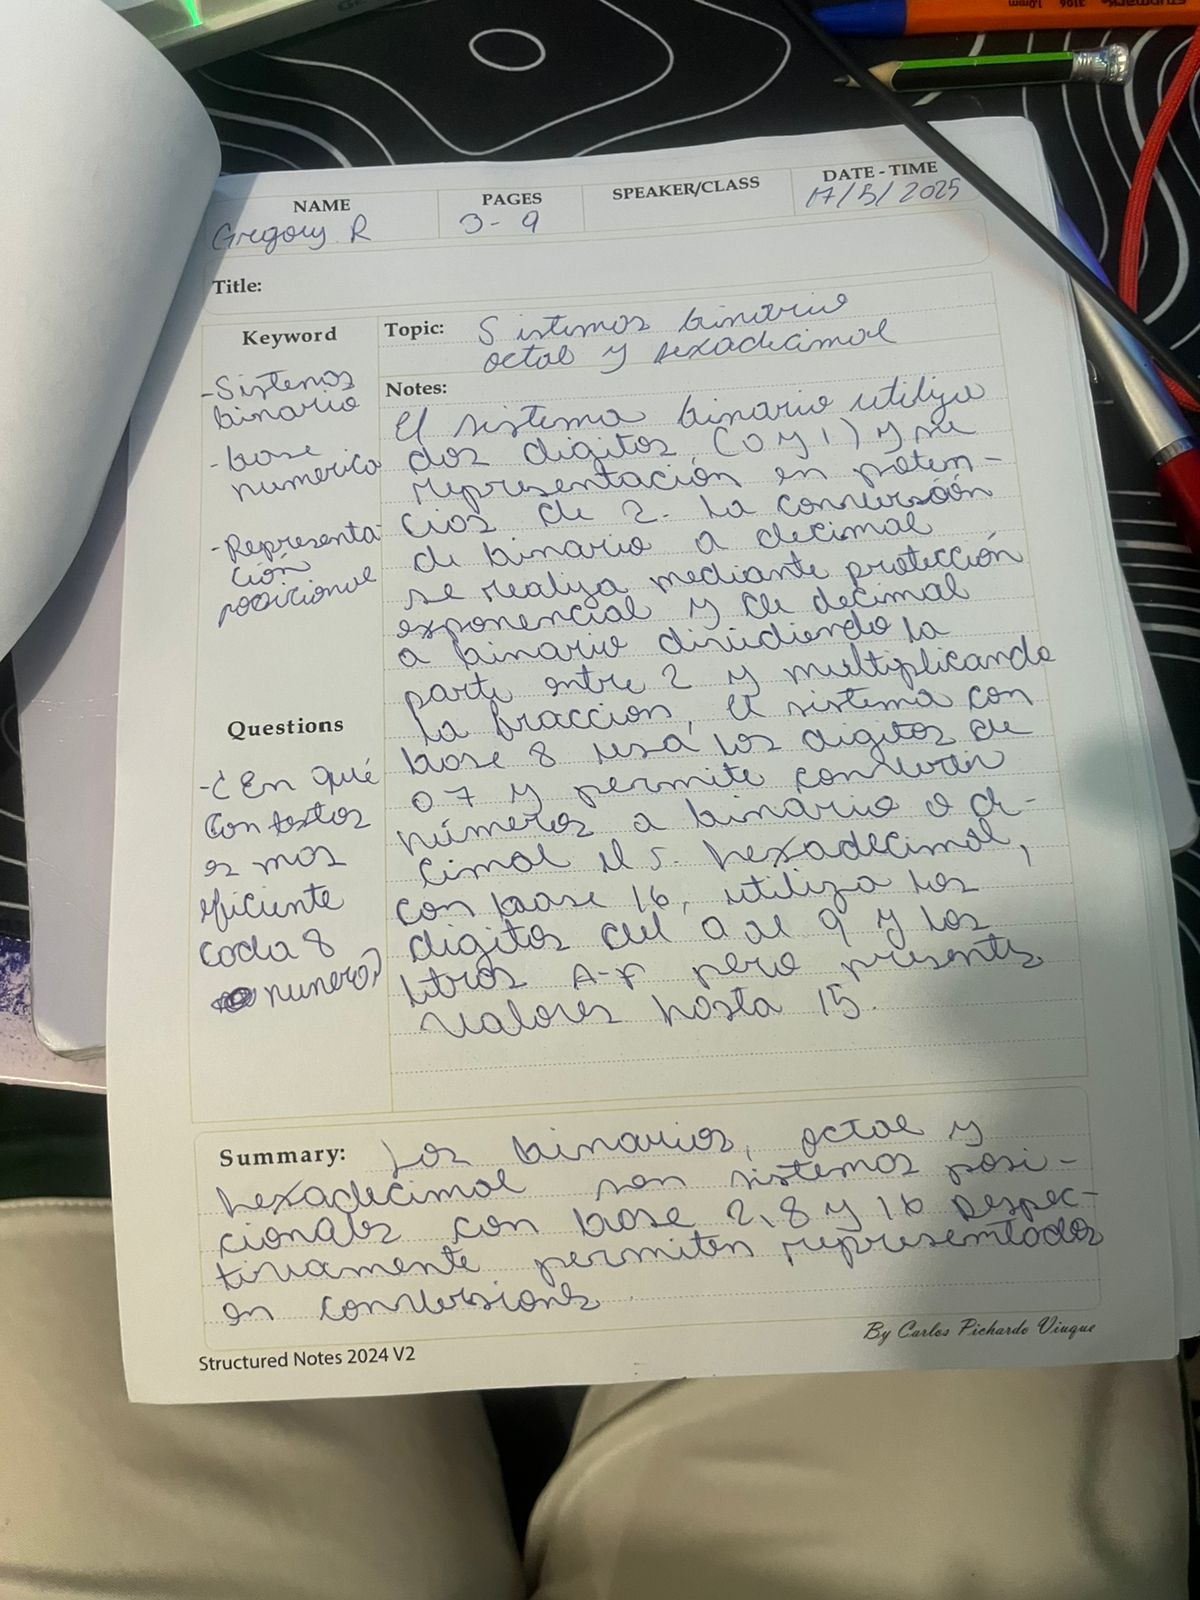 NAME
Gregory R
PAGES
3-9
SPEAKER/CLASS
DATE - TIME
17/5/2025
Title:
Keyword
-Sistemas
binario
-base
numerica
-Representa-
ción
posicional
Topic: Sistemas binario
octal y hexadecimal
Notes:
El sistema binario utiliza
dos digitos (0 y 1) y su
representación en poten-
cias de 2. La conversión
de binario a decimal
se realiza mediante protección
exponencial y de decimal
a binario dividiendo la
parte entre 2 y multiplicando
la fraccion, El sistema con
base 8 usa los digitos de
0 7 y permite convertir
números a binario o de-
cimal el s. hexadecimal,
con base 16, utiliza los
digitos del 0 al 9 y los
letras A-F pero presenta
valores hasta 15.
Questions
-¿En qué
contextos
es mas
eficiente
cada 8
numero?
Summary: Los binarios, octal y
hexadecimal son sistemas posi-
cionales con base 2, 8 y 16 respec-
tivamente permiten representados
en conversiones.
By Carlos Pichardo Viuque
Structured Notes 2024 V2